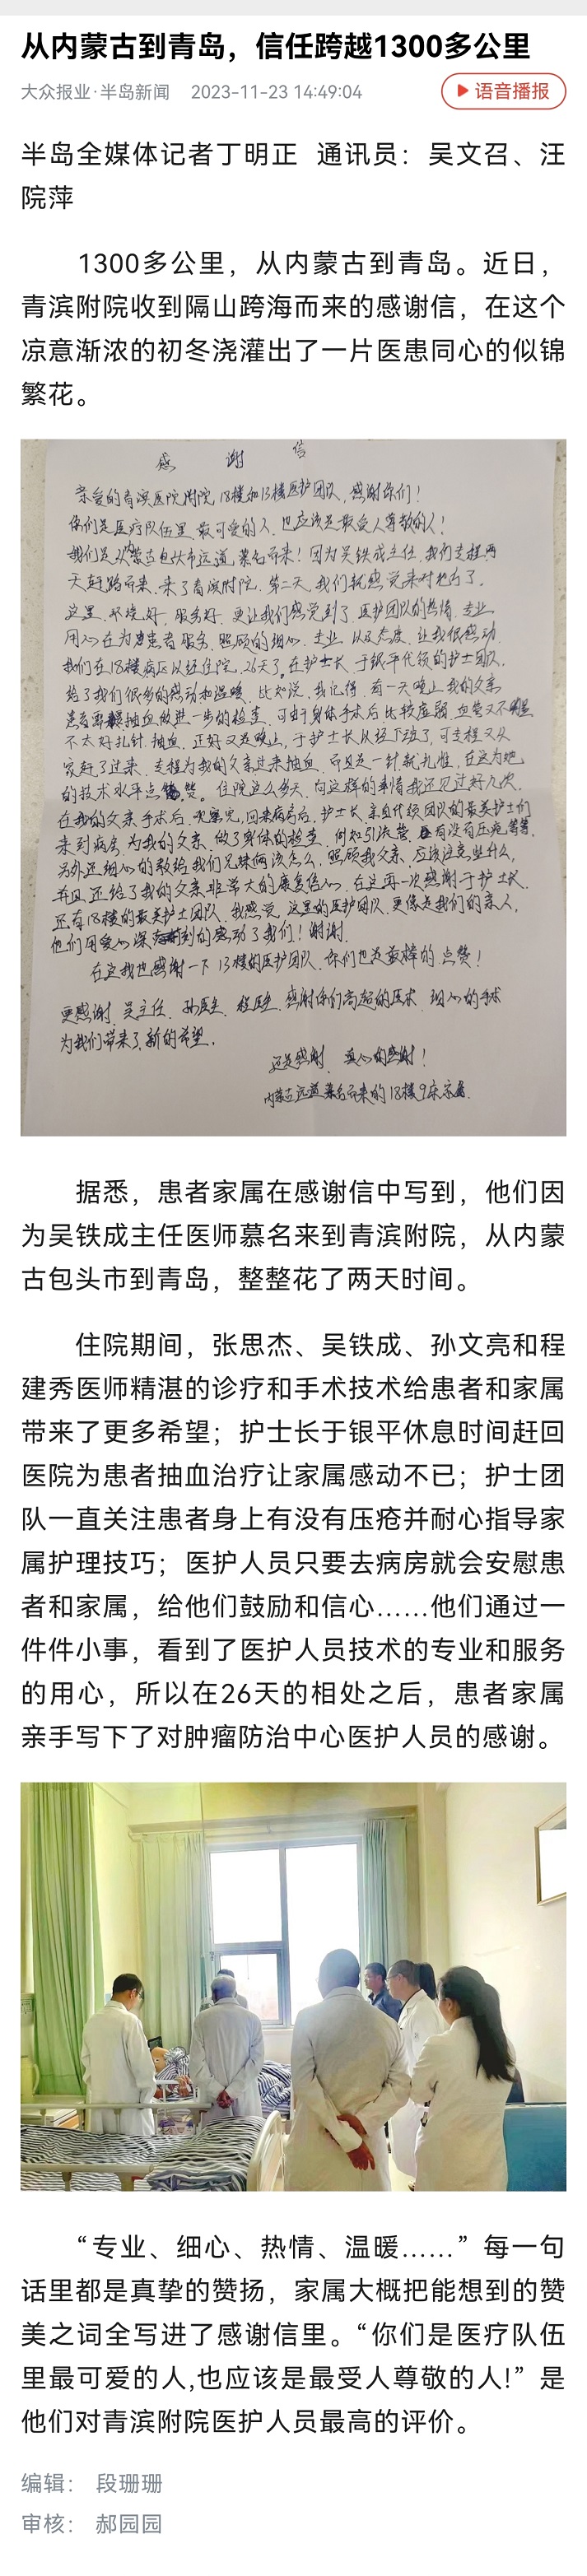 从内蒙古到青岛，信任跨越1300多公里
大众报业·半岛新闻 2023-11-23 14:49:04
语音播报
半岛全媒体记者丁明正 通讯员：吴文召、汪
院萍
1300多公里，从内蒙古到青岛。近日，
青滨附院收到隔山跨海而来的感谢信，在这个
凉意渐浓的初冬浇灌出了一片医患同心的似锦
繁花。
感谢信
亲爱的青滨医院附院18楼和13楼医护团队，感谢你们！
你们是医疗队伍里最可爱的人，也应该是最受人尊敬的人！
我们是从内蒙古包头市远道慕名而来！因为吴铁成主任，我们支程两
天赶路而来，来了青滨附院，第二天，我们就感觉来对地方了，
这里，环境好，服务好，更让我们感觉到了，医护团队的热情，专业
用心在为患者服务，照顾的细心，专业，以及态度，让我很感动，
我们在18楼病区以经住院，26天了，在护士长，于银平代领的护士团队，
给了我们很多的感动和温暖，比如说，我记得，有一天晚上，我的父亲
抽血做进一步的检查，可由于身体手术后比较虚弱，血管又不
不太好扎针，抽血，正好又是晚上，于护士长以经下班了，可支程又从
家赶了过来，支程为我的父亲过来抽血，而且是一针就扎准，在这为她
的技术水平点赞。住院这么多天，向这样的事情我还见过好几次，
在我的父亲手术后，观察完，回来病房后，护士长，亲自代领团队的最美护士们
来到病房，为我的父亲，做了身体的检查，例如引流管，有没有压疮等等，
另外还细心的教给我们兄妹俩该怎么，照顾我父亲，应该注意些什么，
并且，还给了我的父亲非常大的康复信心，在这再一次感谢于护士长，
还有18楼的最美护士团队，我感觉，这里的医护团队，更像是我们的亲人，
他们用爱心深的感动了我们！谢谢
在这我也感谢一下13楼的医护团队，你们也是最棒的，点赞！
更感谢，吴主任，孙医生，程医生，感谢你们高超的医术，细心的手术
为我们带来了新的希望，
还是感谢，真心的感谢！
内蒙古远道慕名而来的18楼9床家属
据悉，患者家属在感谢信中写到，他们因
为吴铁成主任医师慕名来到青滨附院，从内蒙
古包头市到青岛，整整花了两天时间。
住院期间，张思杰、吴铁成、孙文亮和程
建秀医师精湛的诊疗和手术技术给患者和家属
带来了更多希望；护士长于银平休息时间赶回
医院为患者抽血治疗让家属感动不已；护士团
队一直关注患者身上有没有压疮并耐心指导家
属护理技巧；医护人员只要去病房就会安慰患
者和家属，给他们鼓励和信心……他们通过一
件件小事，看到了医护人员技术的专业和服务
的用心，所以在26天的相处之后，患者家属
亲手写下了对肿瘤防治中心医护人员的感谢。
“专业、细心、热情、温暖……”每一句
话里都是真挚的赞扬，家属大概把能想到的赞
美之词全写进了感谢信里。“你们是医疗队伍
里最可爱的人,也应该是最受人尊敬的人!”是
他们对青滨附院医护人员最高的评价。
编辑： 段珊珊
审核： 郝园园